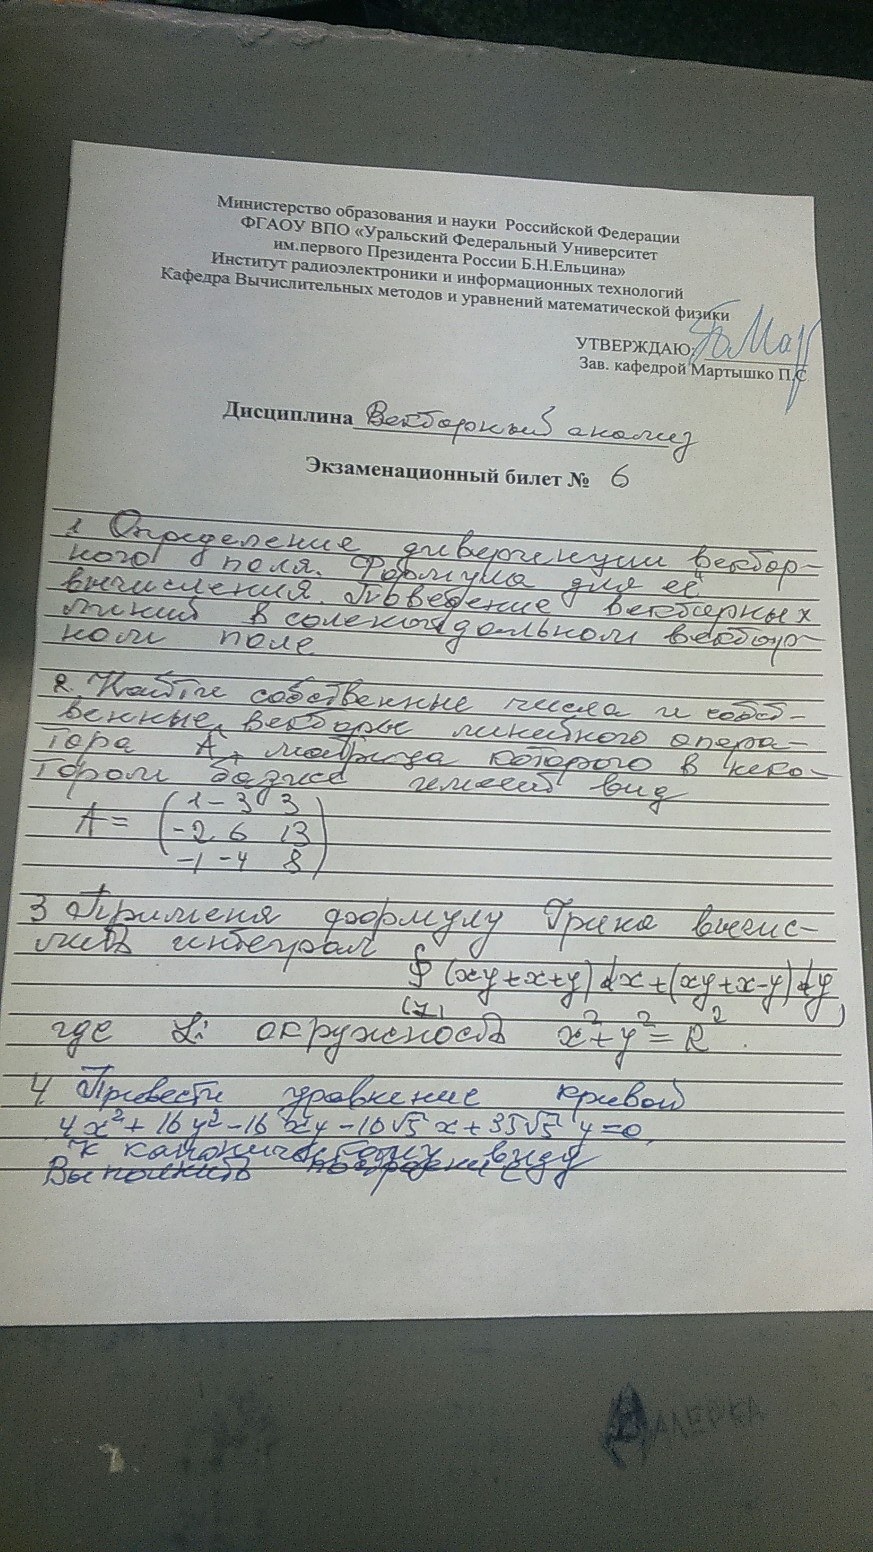 Министерство образования и науки Российской Федерации
ФГАОУ ВПО «Уральский Федеральный Университет
им.первого Президента России Б.Н.Ельцина»
Институт радиоэлектроники и информационных технологий
Кафедра Вычислительных методов и уравнений математической физики
УТВЕРЖДАЮ:
Зав. кафедрой Мартышко П.С
Дисциплина Векторный анализ
Экзаменационный билет № 6
1 Определение дивергенции вектор-
ного поля. Формула для её
вычисления. Поведение векторных
линий в соленоидальном вектор-
ном поле
2. Найти собственные числа и собст-
венные векторы линейного опера-
тора A, матрица которого в неко-
тором базисе имеет вид
A = (1 -3 3
-2 6 13
-1 -4 8)
3 Применяя формулу Грина вычис-
лить интеграл
∮ (xy+x+y) dx+(xy+x-y) dy,
(L)
где L: окружность x²+y²=R².
4 Привести уравнение кривой
4x²+16y²-16xy-10√5 x+35√5 y=0
к каноническому виду
Выполнить построение
ВАЛЕРКА